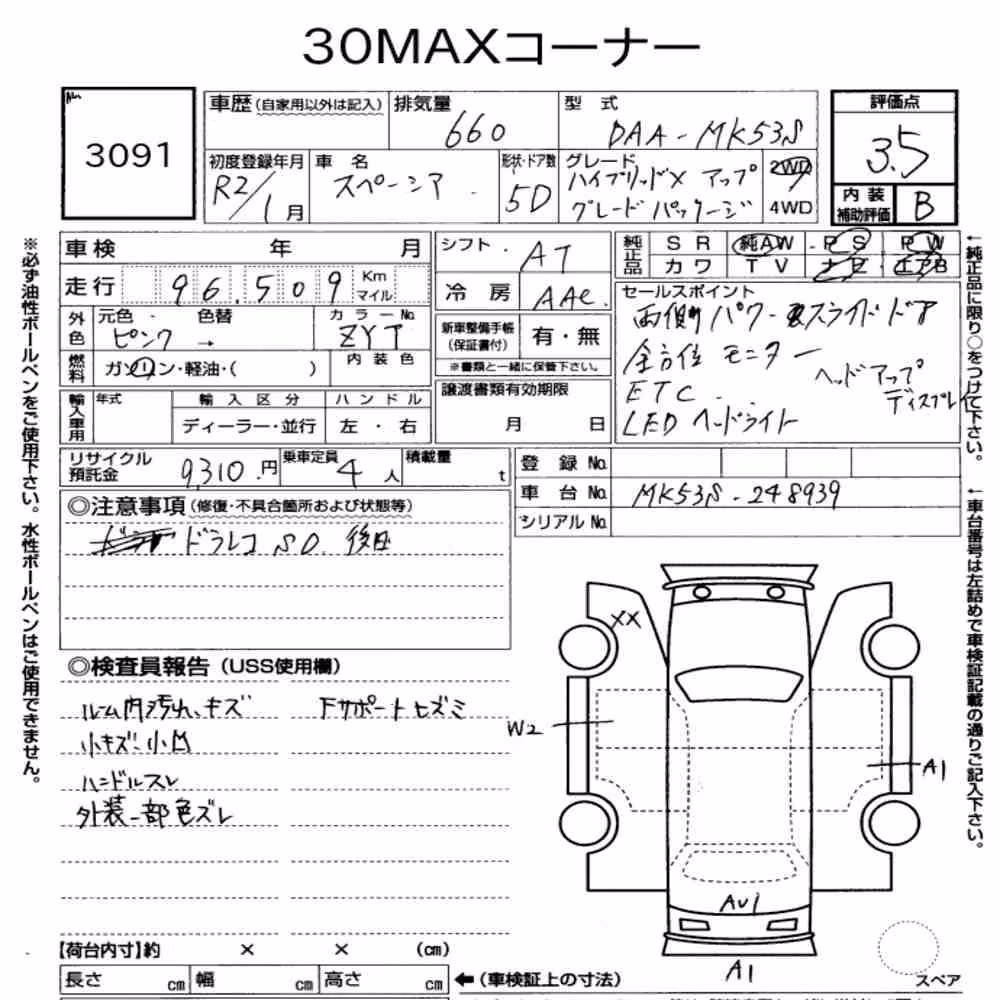 30MAXコーナー
No. 3091
車歴 (自家用以外は記入) 排気量 660 型 式 DAA-MK53S
評価点 3.5
初度登録年月 R2/1月 車 名 スペーシア 形状・ドア数 5D グレード ハイブリッドX アップグレードパッケージ 2WD 4WD
内装補助評価 B
車検 年 月
シフト AT
純正品 SR 純AW PS PW
カワ TV ナビ エアB
走行 96,509 Km マイル
冷房 AAC
セールスポイント
両側パワースライドドア
全方位モニター
ETC ヘッドアップディスプレイ
LEDヘッドライト
外色 元色 ピンク → 色替 カラーNo ZYT
新車整備手帳(保証書付) 有・無
※書類と一緒に保管下さい。
燃料 ガソリン・軽油・( ) 内装色
譲渡書類有効期限
月 日
輸入車用 年式 輸入区分 ハンドル
ディーラー・並行 左・右
リサイクル預託金 9,310円 乗車定員 4人 積載量 t
登録No.
車台No. MK53S-248939
シリアルNo.
◎注意事項(修復・不具合箇所および状態等)
ドラレコ SD. 後日
◎検査員報告(USS使用欄)
ルーム内汚れ、キズ
小キズ・小凹
ハンドルスレ
外装一部色ズレ
Fサポートヒズミ
XX
W2
A1
AU1
A1
スペア
【荷台内寸】約 × × (cm)
長さ cm 幅 cm 高さ cm
←(車検証上の寸法)
※必ず油性ボールペンをご使用下さい。水性ボールペンはご使用できません。
←純正品に限り○をつけて下さい。
←車台番号は左詰めで車検証記載の通りご記入下さい。